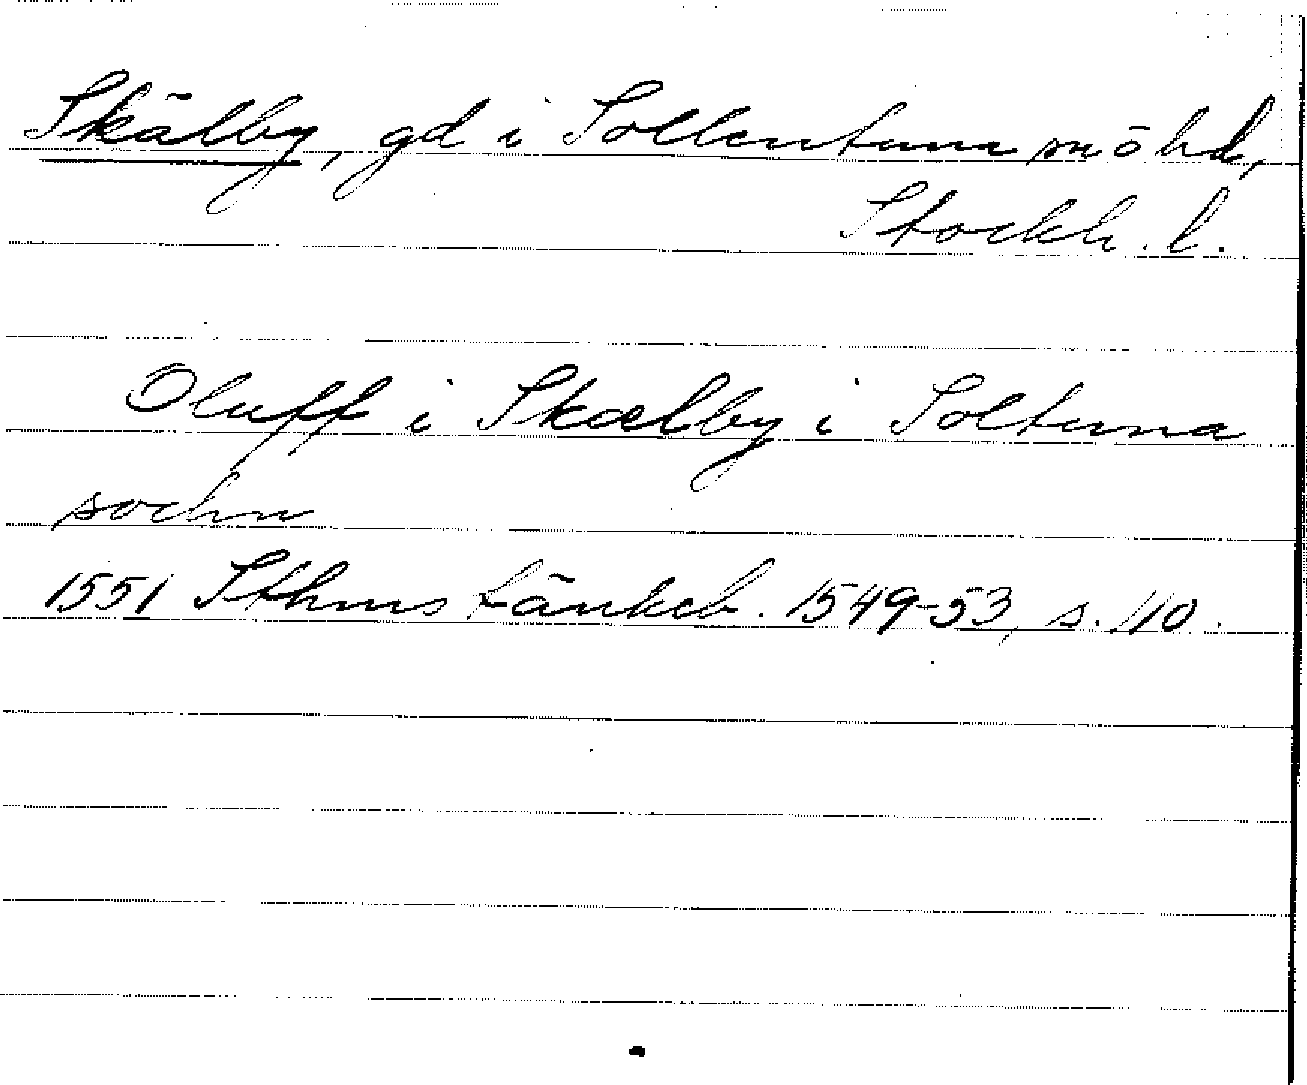 Skälby, gd i Sollentuna sn ö hd,
Stockh. l.
Oluff i Skælby i Soltuna
sochn
1551 Sthms tänkeb. 1549-53, s. 110.